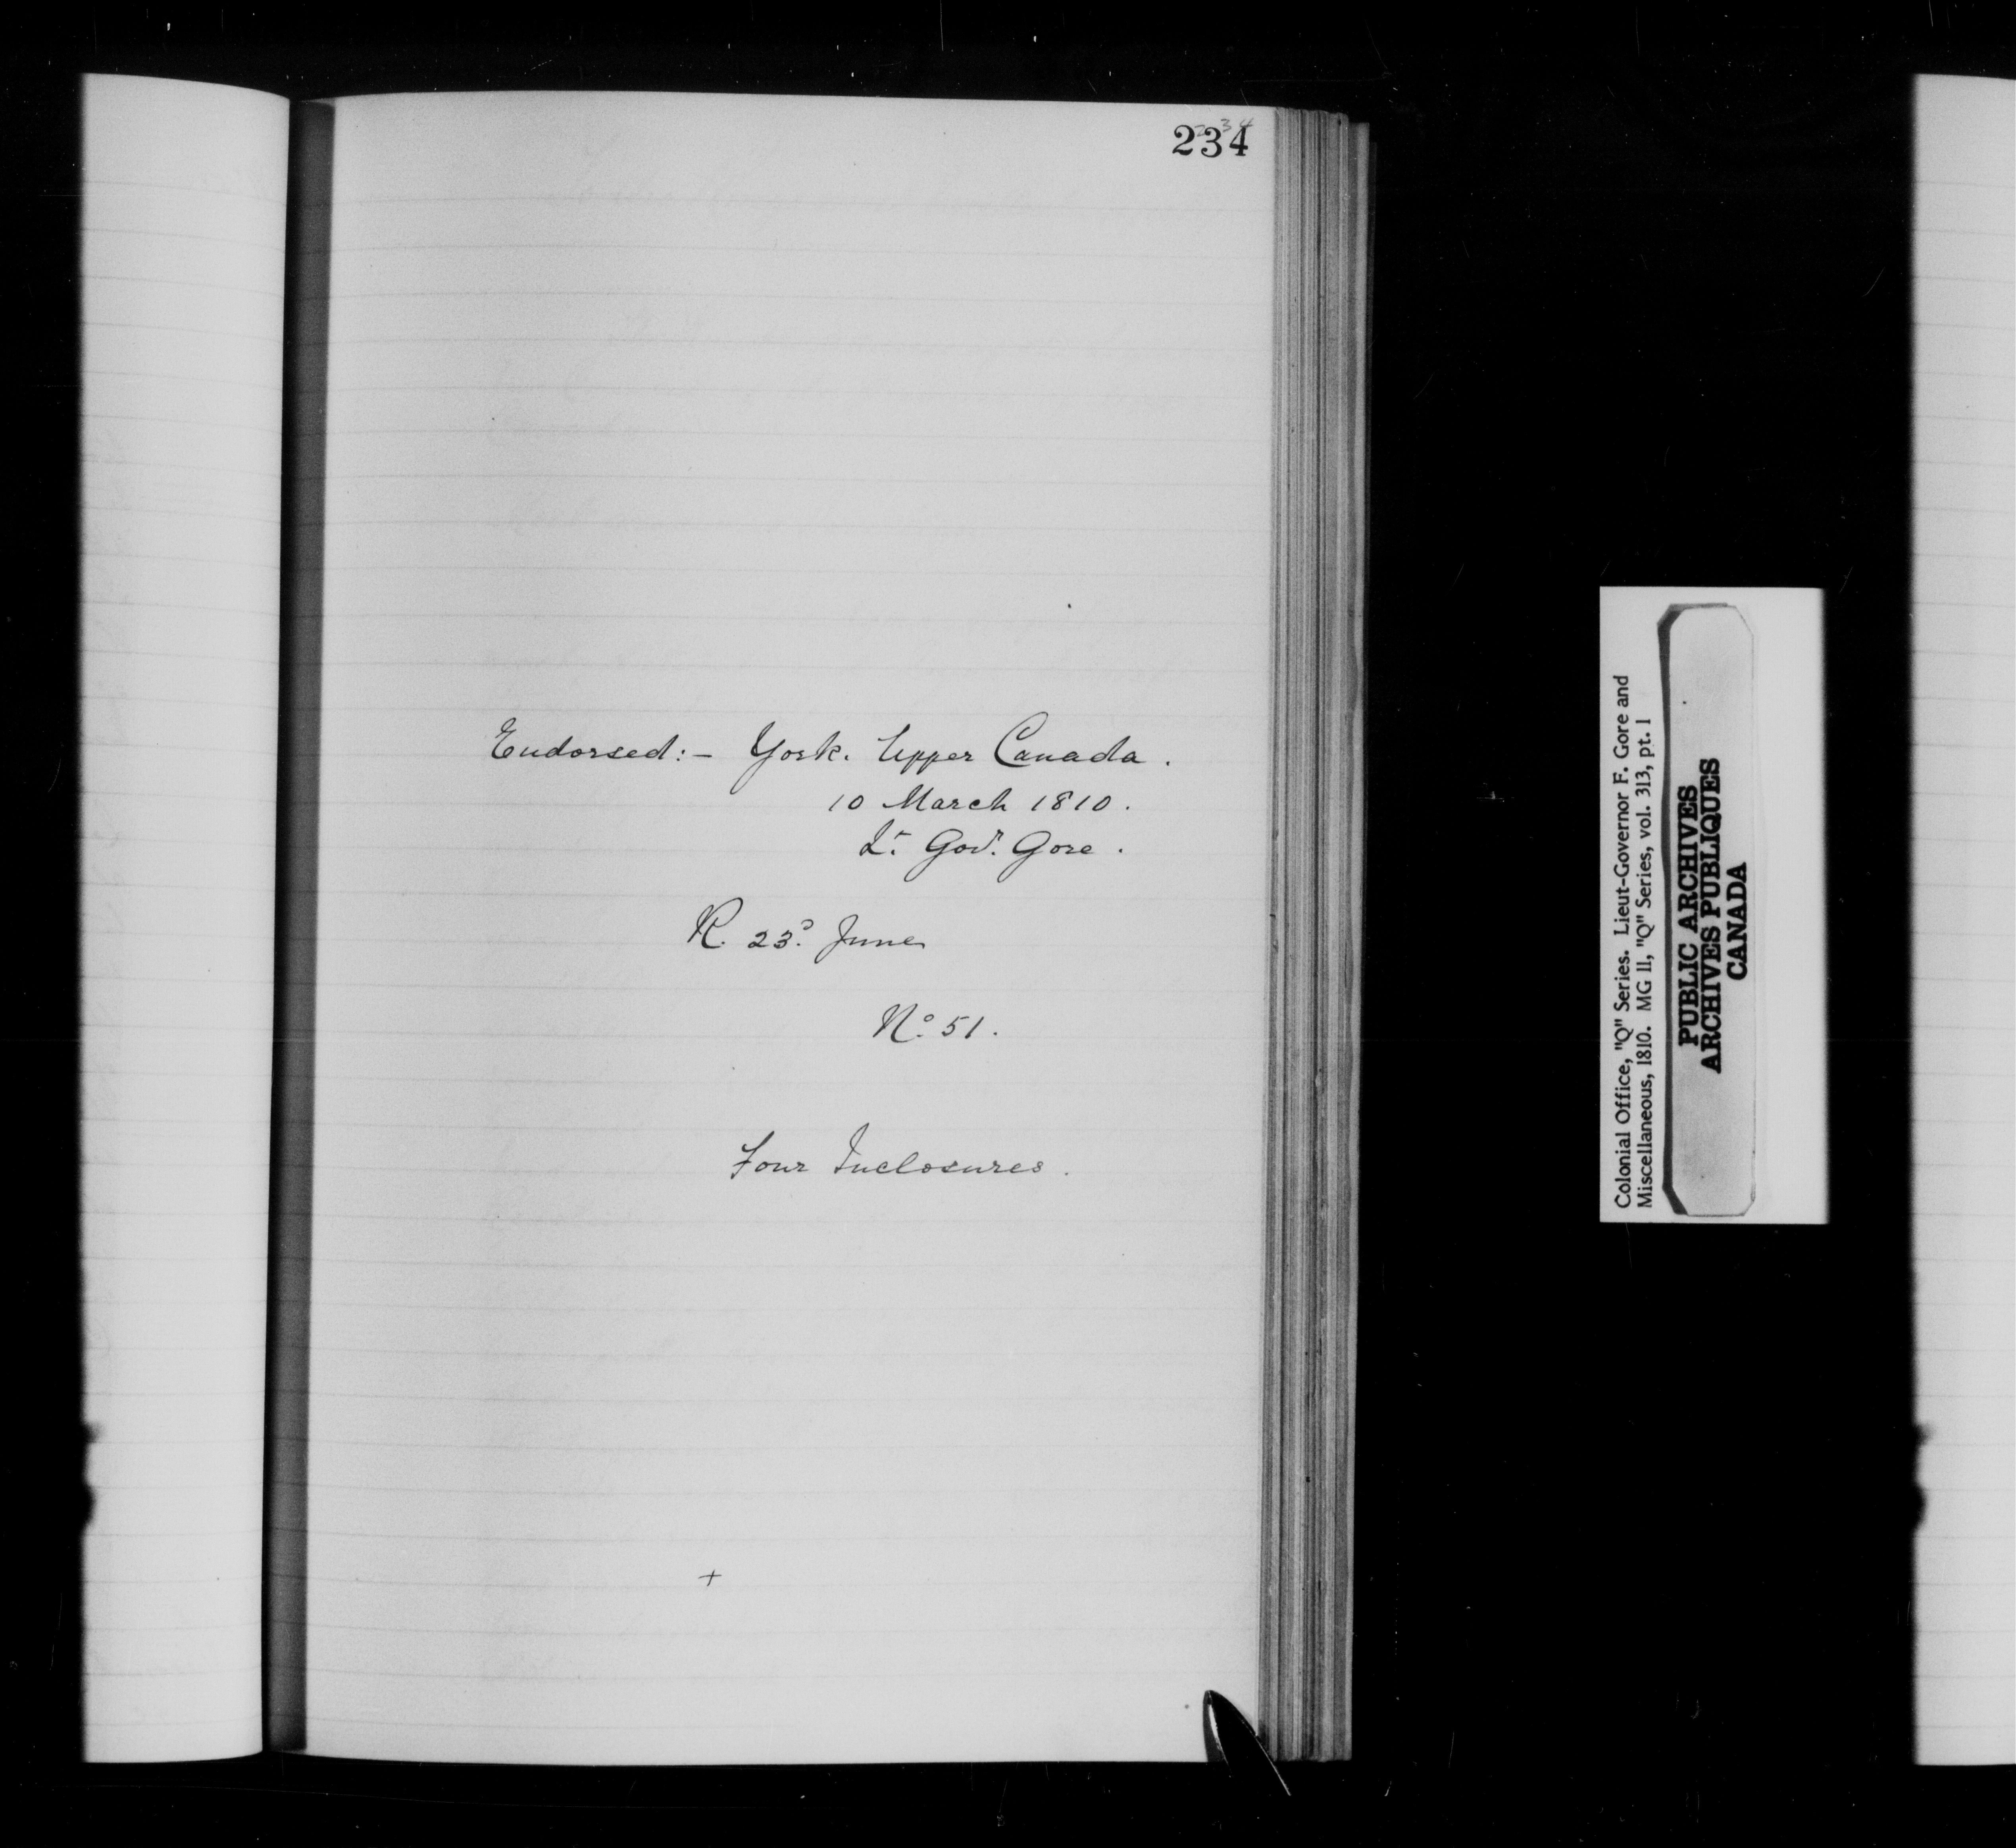 234
234
Endorsed:- York. Upper Canada.
10 March 1810.
Lt. Govr. Gore.
R. 23d. June
No. 51.
Four Inclosures.
+
Colonial Office, "Q" Series. Lieut-Governor F. Gore and
Miscellaneous, 1810. MG 11, "Q" Series, vol. 313, pt. 1
PUBLIC ARCHIVES
ARCHIVES PUBLIQUES
CANADA